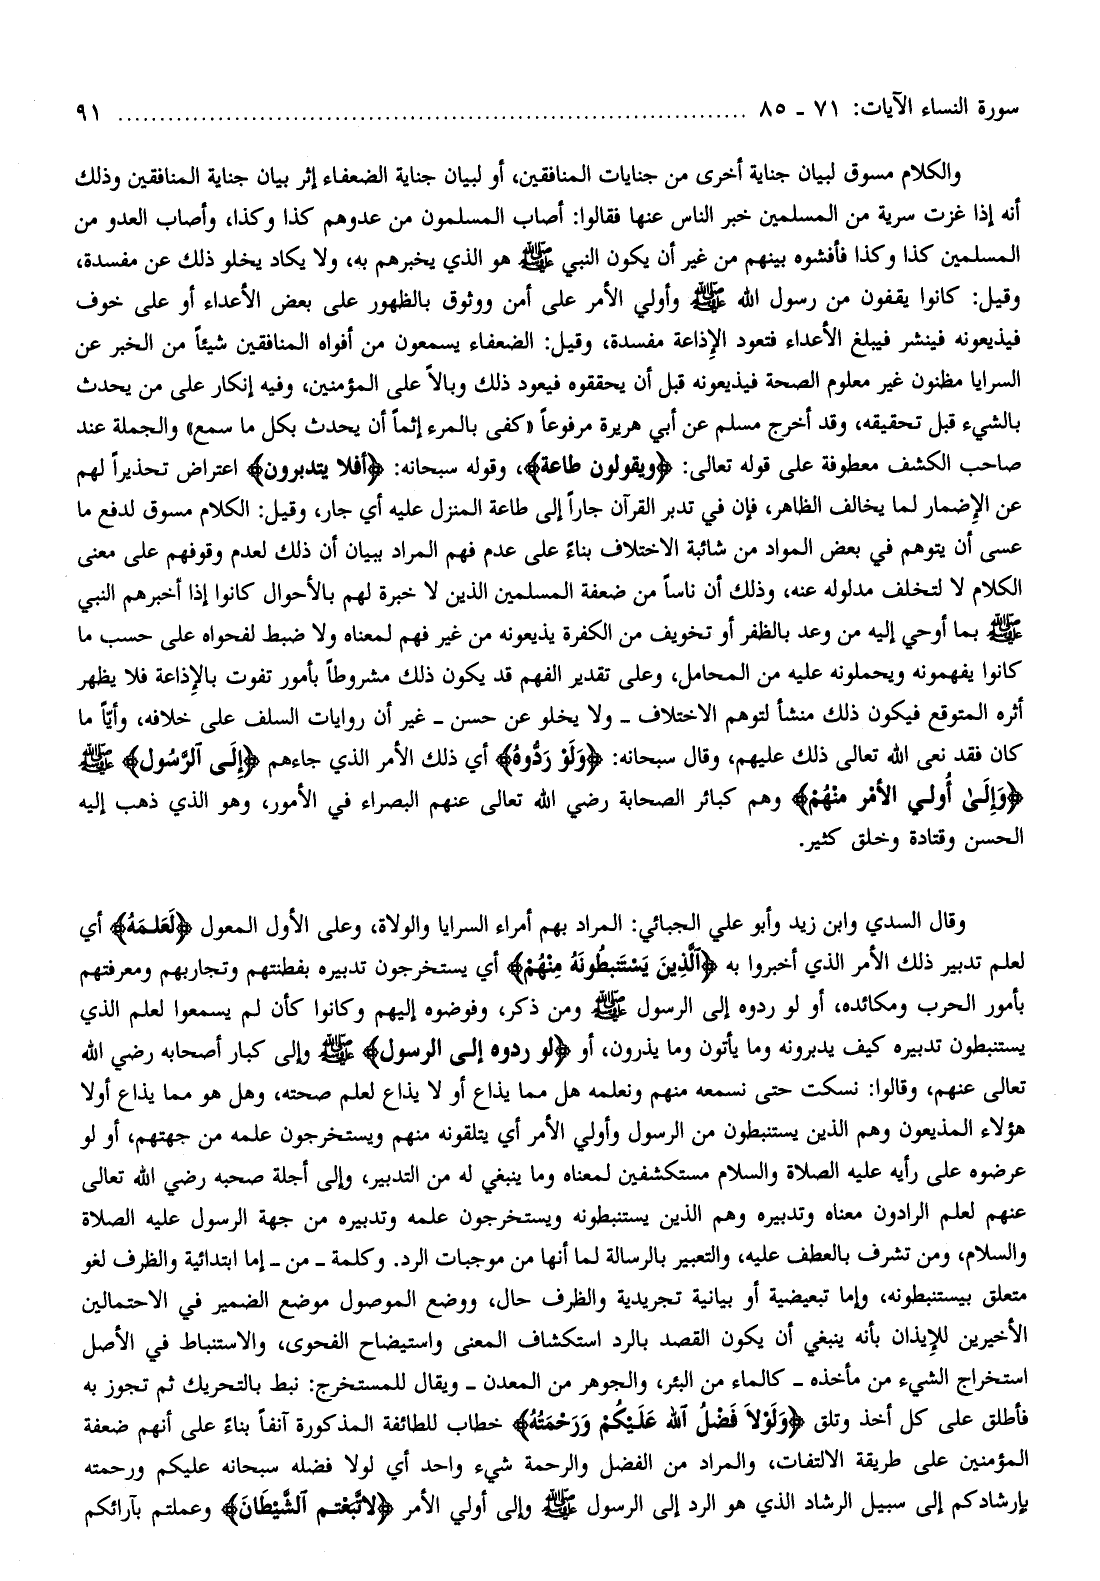 سورة النساء الآيات: ٧١ - ٨٥ ........................................ ٩١
والكلام مسوق لبيان جناية أخرى من جنايات المنافقين، أو لبيان جناية الضعفاء إثر بيان جناية المنافقين وذلك
أنه إذا غزت سرية من المسلمين خبر الناس عنها فقالوا: أصاب المسلمون من عدوهم كذا وكذا، وأصاب العدو من
المسلمين كذا وكذا فأفشوه بينهم من غير أن يكون النبي ﷺ هو الذي يخبرهم به، ولا يكاد يخلو ذلك عن مفسدة،
وقيل: كانوا يقفون من رسول الله ﷺ وأولي الأمر على أمن ووثوق بالظهور على بعض الأعداء أو على خوف
فيذيعونه فينشر فيبلغ الأعداء فتعود الإذاعة مفسدة، وقيل: الضعفاء يسمعون من أفواه المنافقين شيئاً من الخبر عن
السرايا مظنون غير معلوم الصحة فيذيعونه قبل أن يحققوه فيعود ذلك وبالاً على المؤمنين، وفيه إنكار على من يحدث
بالشيء قبل تحقيقه، وقد أخرج مسلم عن أبي هريرة مرفوعاً «كفى بالمرء إثماً أن يحدث بكل ما سمع» والجملة عند
صاحب الكشف معطوفة على قوله تعالى: ﴿ويقولون طاعة﴾، وقوله سبحانه: ﴿أفلا يتدبرون﴾ اعتراض تحذيراً لهم
عن الإضمار لما يخالف الظاهر، فإن في تدبر القرآن جاراً إلى طاعة المنزل عليه أي جار، وقيل: الكلام مسوق لدفع ما
عسى أن يتوهم في بعض المواد من شائبة الاختلاف بناءً على عدم فهم المراد ببيان أن ذلك لعدم وقوفهم على معنى
الكلام لا لتخلف مدلوله عنه، وذلك أن ناساً من ضعفة المسلمين الذين لا خبرة لهم بالأحوال كانوا إذا أخبرهم النبي
ﷺ بما أوحي إليه من وعد بالظفر أو تخويف من الكفرة يذيعونه من غير فهم لمعناه ولا ضبط لفحواه على حسب ما
كانوا يفهمونه ويحملونه عليه من المحامل، وعلى تقدير الفهم قد يكون ذلك مشروطاً بأمور تفوت بالإذاعة فلا يظهر
أثره المتوقع فيكون ذلك منشأ لتوهم الاختلاف - ولا يخلو عن حسن - غير أن روايات السلف على خلافه، وأيّاً ما
كان فقد نعى الله تعالى ذلك عليهم، وقال سبحانه: ﴿وَلَوْ رَدُّوهُ﴾ أي ذلك الأمر الذي جاءهم ﴿إِلَى ٱلرَّسُول﴾ ﷺ
﴿وَإِلَىٰ أُولي الأمْر منْهُمْ﴾ وهم كبائر الصحابة رضي الله تعالى عنهم البصراء في الأمور، وهو الذي ذهب إليه
الحسن وقتادة وخلق كثير.
وقال السدي وابن زيد وأبو علي الجبائي: المراد بهم أمراء السرايا والولاة، وعلى الأول المعول ﴿لَعَلـمَهُ﴾ أي
لعلم تدبير ذلك الأمر الذي أخبروا به ﴿ٱلَّذِينَ يَسْتَنبطُونَهُ مِنْهُمْ﴾ أي يستخرجون تدبيره بفطنتهم وتجاربهم ومعرفتهم
بأمور الحرب ومكائده، أو لو ردوه إلى الرسول ﷺ ومن ذكر، وفوضوه إليهم وكانوا كأن لم يسمعوا لعلم الذي
يستنبطون تدبيره كيف يدبرونه وما يأتون وما يذرون، أو ﴿لو ردوه إلى الرسول﴾ ﷺ وإلى كبار أصحابه رضي الله
تعالى عنهم، وقالوا: نسكت حتى نسمعه منهم ونعلمه هل مما يذاع أو لا يذاع لعلم صحته، وهل هو مما يذاع أولا
هؤلاء المذيعون وهم الذين يستنبطون من الرسول وأولي الأمر أي يتلقونه منهم ويستخرجون علمه من جهتهم، أو لو
عرضوه على رأيه عليه الصلاة والسلام مستكشفين لمعناه وما ينبغي له من التدبير، وإلى أجلة صحبه رضي الله تعالى
عنهم لعلم الرادون معناه وتدبيره وهم الذين يستنبطونه ويستخرجون علمه وتدبيره من جهة الرسول عليه الصلاة
والسلام، ومن تشرف بالعطف عليه، والتعبير بالرسالة لما أنها من موجبات الرد. وكلمة - من - إما ابتدائية والظرف لغو
متعلق بيستنبطونه، وإما تبعيضية أو بيانية تجريدية والظرف حال، ووضع الموصول موضع الضمير في الاحتمالين
الأخيرين للإيذان بأنه ينبغي أن يكون القصد بالرد استكشاف المعنى واستيضاح الفحوى، والاستنباط في الأصل
استخراج الشيء من مأخذه - كالماء من البئر، والجوهر من المعدن - ويقال للمستخرج: نبط بالتحريك ثم تجوز به
فأطلق على كل أخذ وتلق ﴿وَلَوْلاَ فَضْلُ ٱلله عَلَيْكُمْ وَرَحْمَتُهُ﴾ خطاب للطائفة المذكورة آنفاً بناءً على أنهم ضعفة
المؤمنين على طريقة الالتفات، والمراد من الفضل والرحمة شيء واحد أي لولا فضله سبحانه عليكم ورحمته
بإرشادكم إلى سبيل الرشاد الذي هو الرد إلى الرسول ﷺ وإلى أولي الأمر ﴿لاتَّبَعْتـم ٱلشَّيْطَانَ﴾ وعملتم بآرائكم